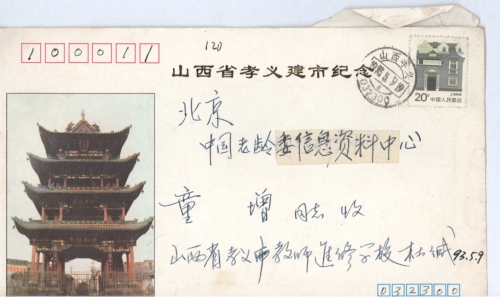 100011
120
山西省孝义建市纪念
山西孝义
032300
20分 中国人民邮政
北京
中国老龄委信息资料中心
童增 同志 收
山西省孝义市教师进修学校 杜斌 93.5.9
032300